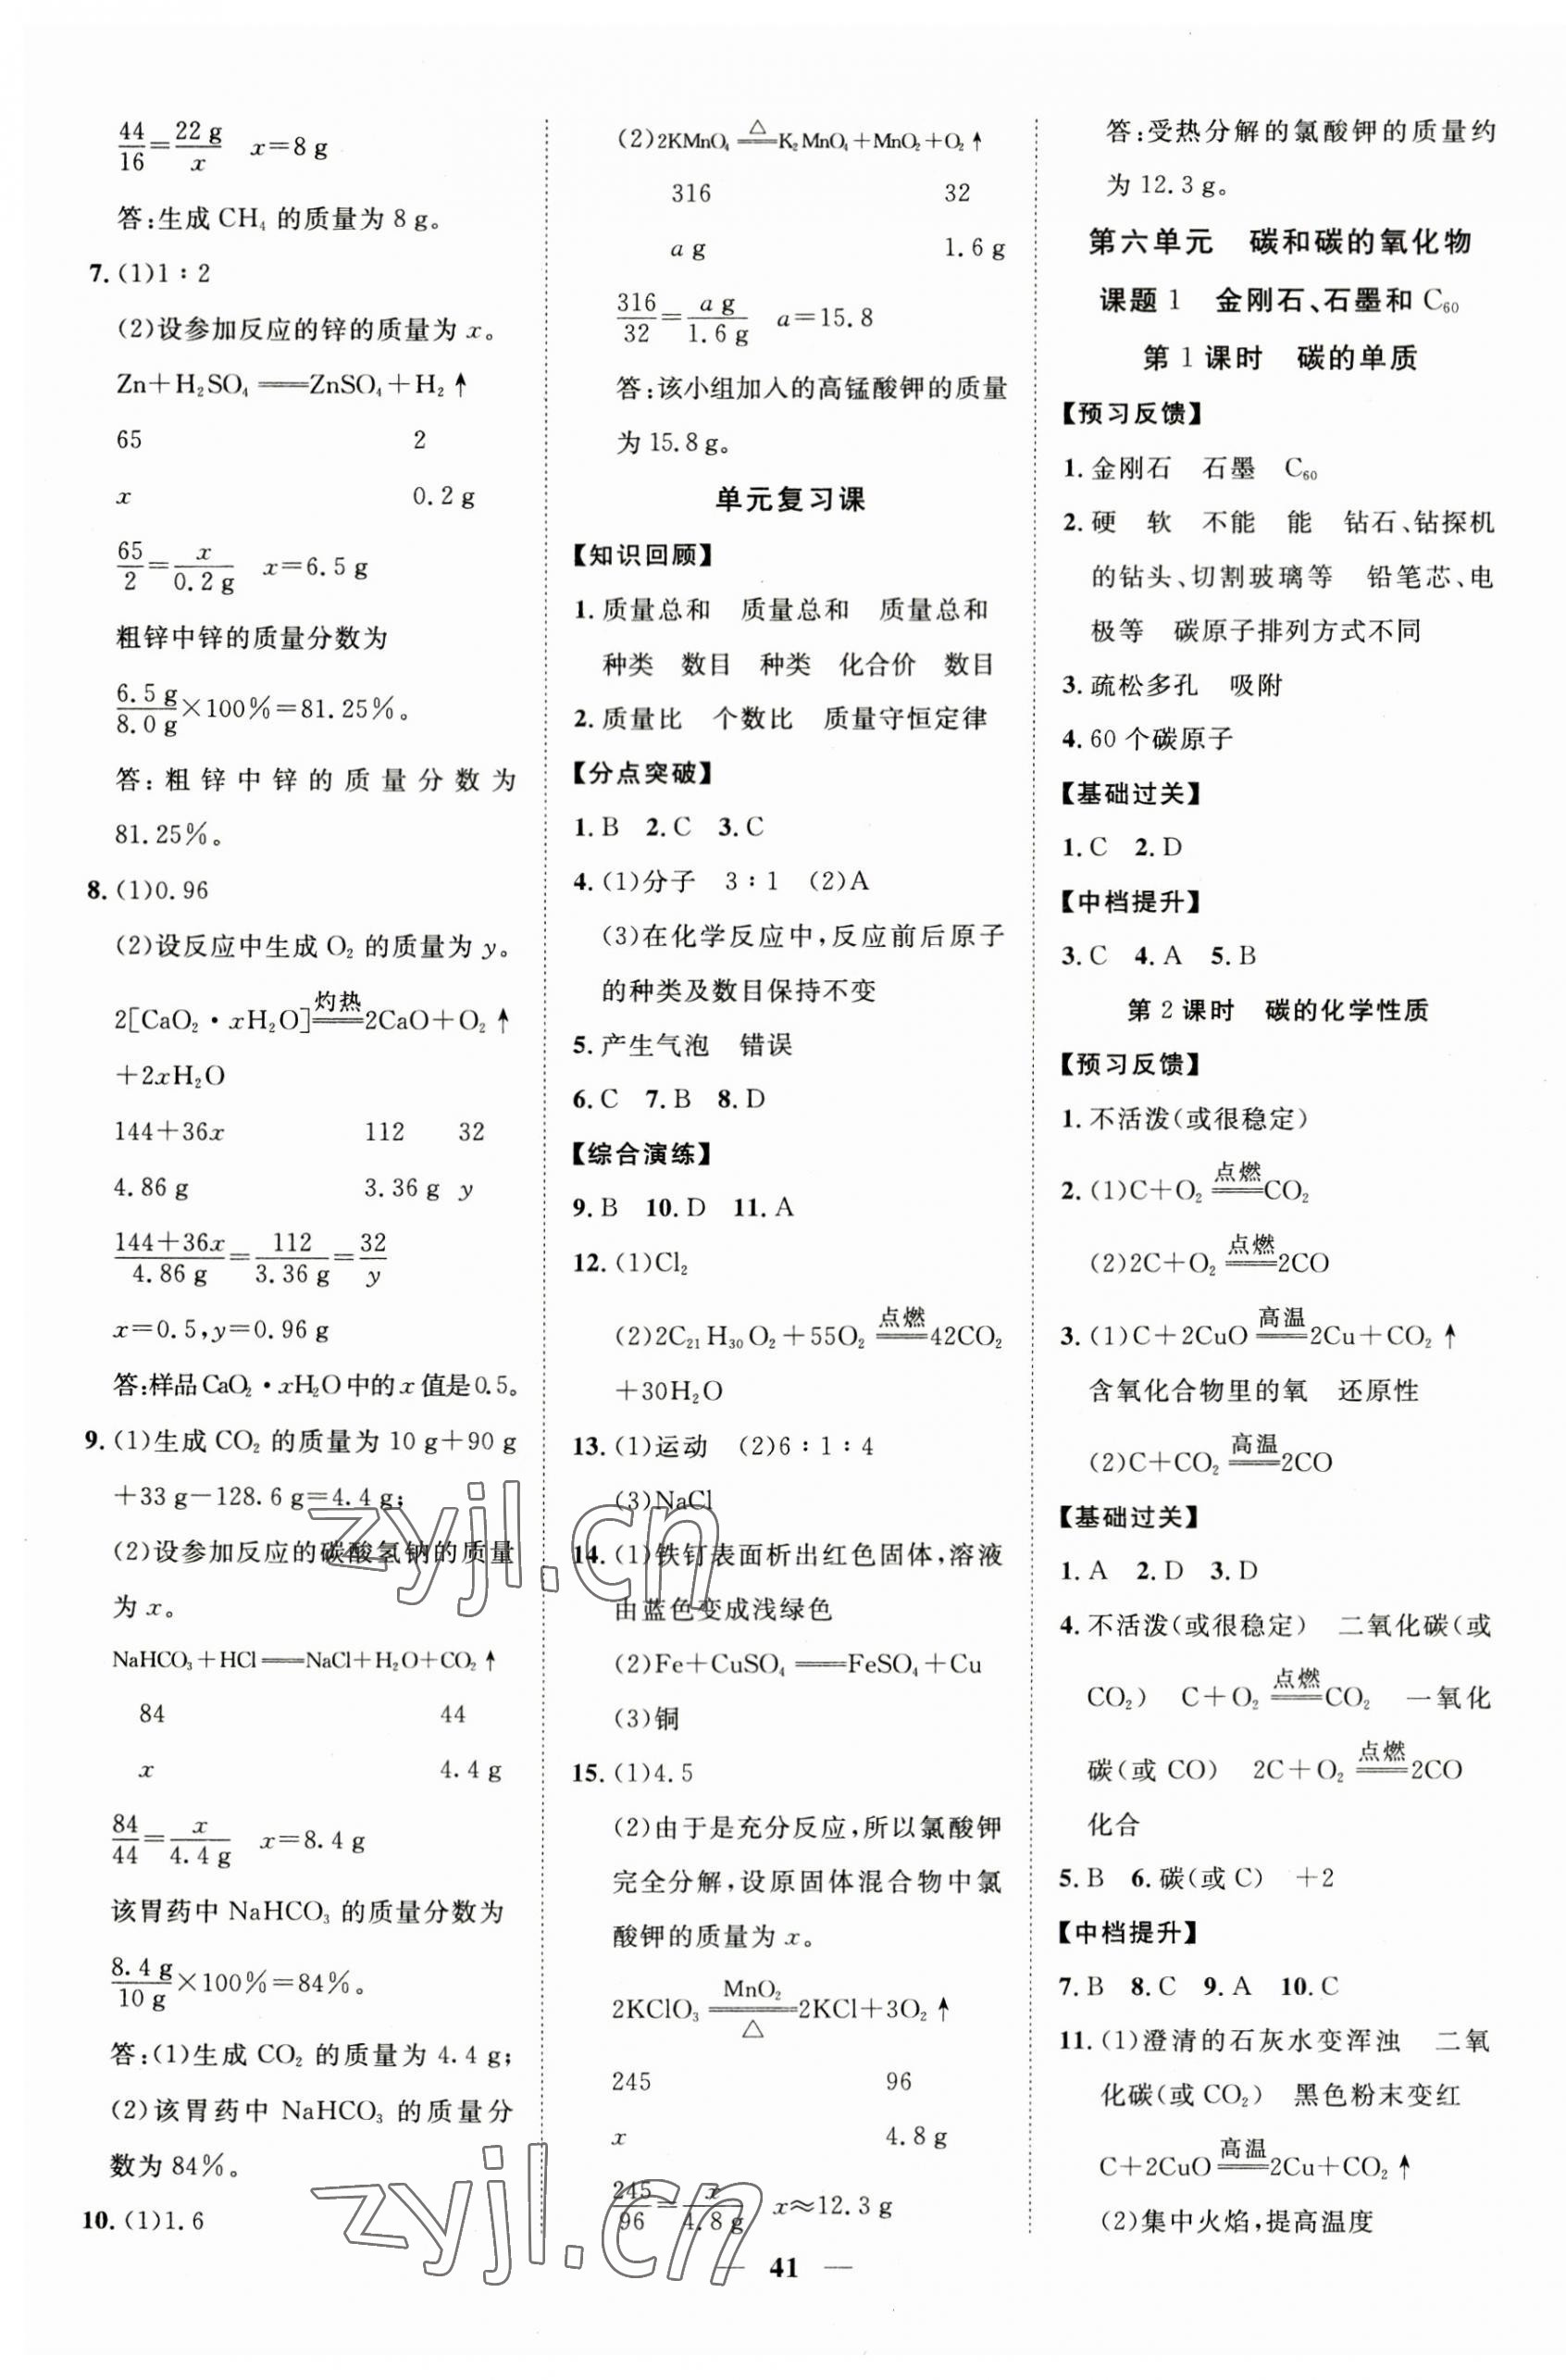 44/16=22 g/x　x=8 g
答:生成 CH₄ 的质量为 8 g。
7.(1)1∶2
(2)设参加反应的锌的质量为 x。
Zn+H₂SO₄══ZnSO₄+H₂↑
65　2
x　0.2 g
65/2=x/0.2 g　x=6.5 g
粗锌中锌的质量分数为
6.5 g/8.0 g×100%=81.25%。
答:粗锌中锌的质量分数为
81.25%。
8.(1)0.96
(2)设反应中生成 O₂ 的质量为 y。
灼热
2[CaO₂·xH₂O]══2CaO+O₂↑
+2xH₂O
144+36x　112　32
4.86 g　3.36 g　y
144+36x/4.86 g=112/3.36 g=32/y
x=0.5,y=0.96 g
答:样品CaO₂·xH₂O中的x值是0.5。
9.(1)生成 CO₂ 的质量为 10 g+90 g
+33 g-128.6 g=4.4 g;
(2)设参加反应的碳酸氢钠的质量
为 x。
NaHCO₃+HCl══NaCl+H₂O+CO₂↑
84　44
x　4.4 g
84/44=x/4.4 g　x=8.4 g
该胃药中 NaHCO₃ 的质量分数为
8.4 g/10 g×100%=84%。
答:(1)生成 CO₂ 的质量为 4.4 g;
(2)该胃药中 NaHCO₃ 的质量分
数为 84%。
10.(1)1.6
△
(2)2KMnO₄══K₂MnO₄+MnO₂+O₂↑
316　32
a g　1.6 g
316/32=a g/1.6 g　a=15.8
答:该小组加入的高锰酸钾的质量
为 15.8 g。
单元复习课
【知识回顾】
1.质量总和　质量总和　质量总和
种类　数目　种类　化合价　数目
2.质量比　个数比　质量守恒定律
【分点突破】
1.B　2.C　3.C
4.(1)分子　3∶1　(2)A
(3)在化学反应中,反应前后原子
的种类及数目保持不变
5.产生气泡　错误
6.C　7.B　8.D
【综合演练】
9.B　10.D　11.A
12.(1)Cl₂
点燃
(2)2C₂₁H₃₀O₂+55O₂══42CO₂
+30H₂O
13.(1)运动　(2)6∶1∶4
(3)NaCl
14.(1)铁钉表面析出红色固体,溶液
由蓝色变成浅绿色
(2)Fe+CuSO₄══FeSO₄+Cu
(3)铜
15.(1)4.5
(2)由于是充分反应,所以氯酸钾
完全分解,设原固体混合物中氯
酸钾的质量为 x。
MnO₂
2KClO₃══2KCl+3O₂↑
△
245　96
x　4.8 g
245/96=x/4.8 g　x≈12.3 g
答:受热分解的氯酸钾的质量约
为 12.3 g。
第六单元　碳和碳的氧化物
课题1　金刚石、石墨和C₆₀
第1课时　碳的单质
【预习反馈】
1.金刚石　石墨　C₆₀
2.硬　软　不能　能　钻石、钻探机
的钻头、切割玻璃等　铅笔芯、电
极等　碳原子排列方式不同
3.疏松多孔　吸附
4.60 个碳原子
【基础过关】
1.C　2.D
【中档提升】
3.C　4.A　5.B
第2课时　碳的化学性质
【预习反馈】
1.不活泼(或很稳定)
点燃
2.(1)C+O₂══CO₂
点燃
(2)2C+O₂══2CO
高温
3.(1)C+2CuO══2Cu+CO₂↑
含氧化合物里的氧　还原性
高温
(2)C+CO₂══2CO
【基础过关】
1.A　2.D　3.D
4.不活泼(或很稳定)　二氧化碳(或
点燃
CO₂)　C+O₂══CO₂　一氧化
点燃
碳(或 CO)　2C+O₂══2CO
化合
5.B　6.碳(或 C)　+2
【中档提升】
7.B　8.C　9.A　10.C
11.(1)澄清的石灰水变浑浊　二氧
化碳(或 CO₂)　黑色粉末变红
高温
C+2CuO══2Cu+CO₂↑
(2)集中火焰,提高温度
— 41 —
zyjl.cn
zyjl.cn